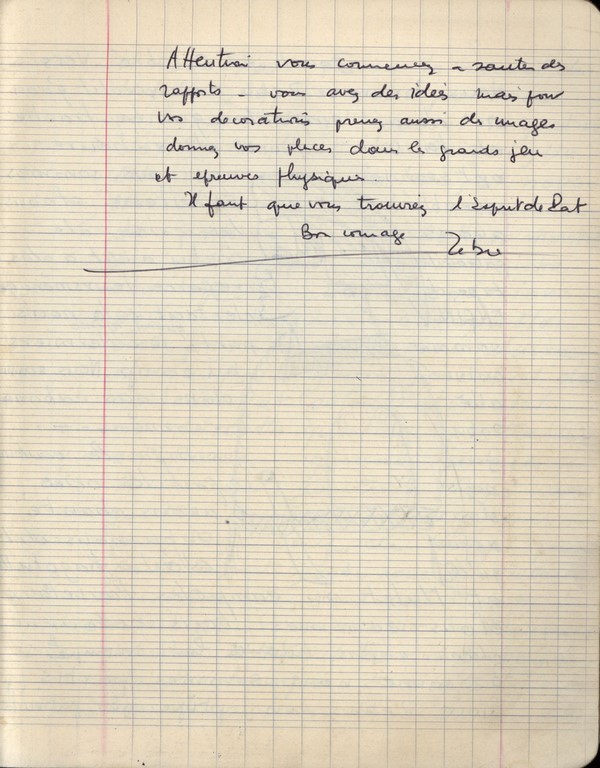 Attention vous commencez a sauter des
rapports - vous avez des idées mais pour
vos decorations prenez aussi des images
donnez vos places dans les grands jeu
et epreuves Physiques.
Il faut que vous trouviez l'Esprit de Pat
Bon courage Zebre